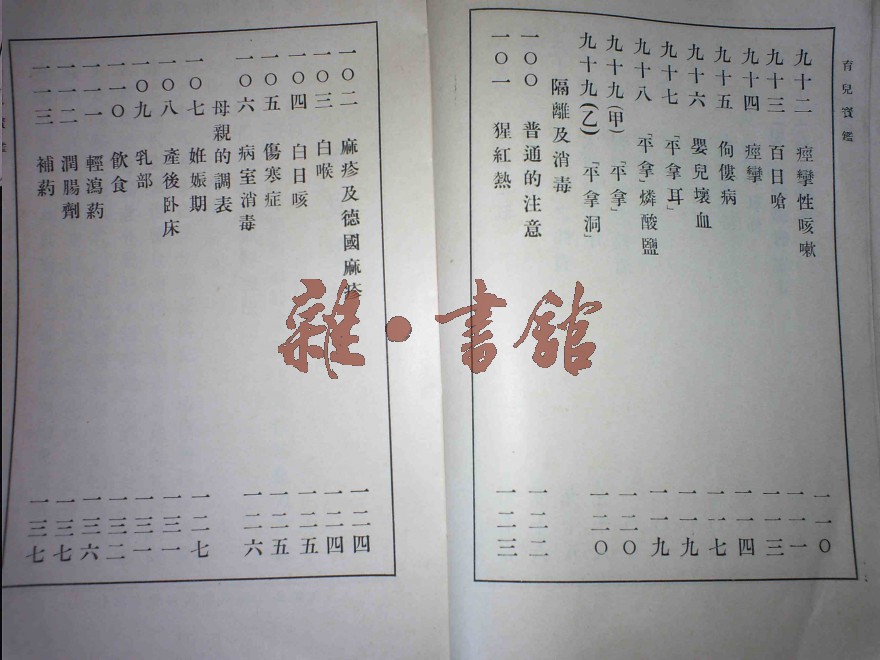 育兒寳鑑
九十二 痙攣性咳嗽 一一〇
九十三 百日嗆 一一一
九十四 痙攣 一一三
九十五 佝僂病 一一四
九十六 嬰兒壞血 一一七
九十七 「平拿耳」 一一九
九十八 「平拿」燐酸鹽 一一九
九十九(甲) 「平拿」 一二〇
九十九(乙) 「平拿洞」 一二〇
隔離及消毒
一〇〇 普通的注意 一二二
一〇一 猩紅熱 一二三
一〇二 麻疹及德國麻疹 一二四
一〇三 白喉 一二四
一〇四 白日咳 一二五
一〇五 傷寒症 一二五
一〇六 病室消毒 一二六
母親的調表
一〇七 姙娠期 一二七
一〇八 產後卧床 一三一
一〇九 乳部 一三一
一一〇 飲食 一三二
一一一 輕瀉葯 一三六
一一二 潤腸劑 一三七
一一三 補葯 一三七
雜·書舘